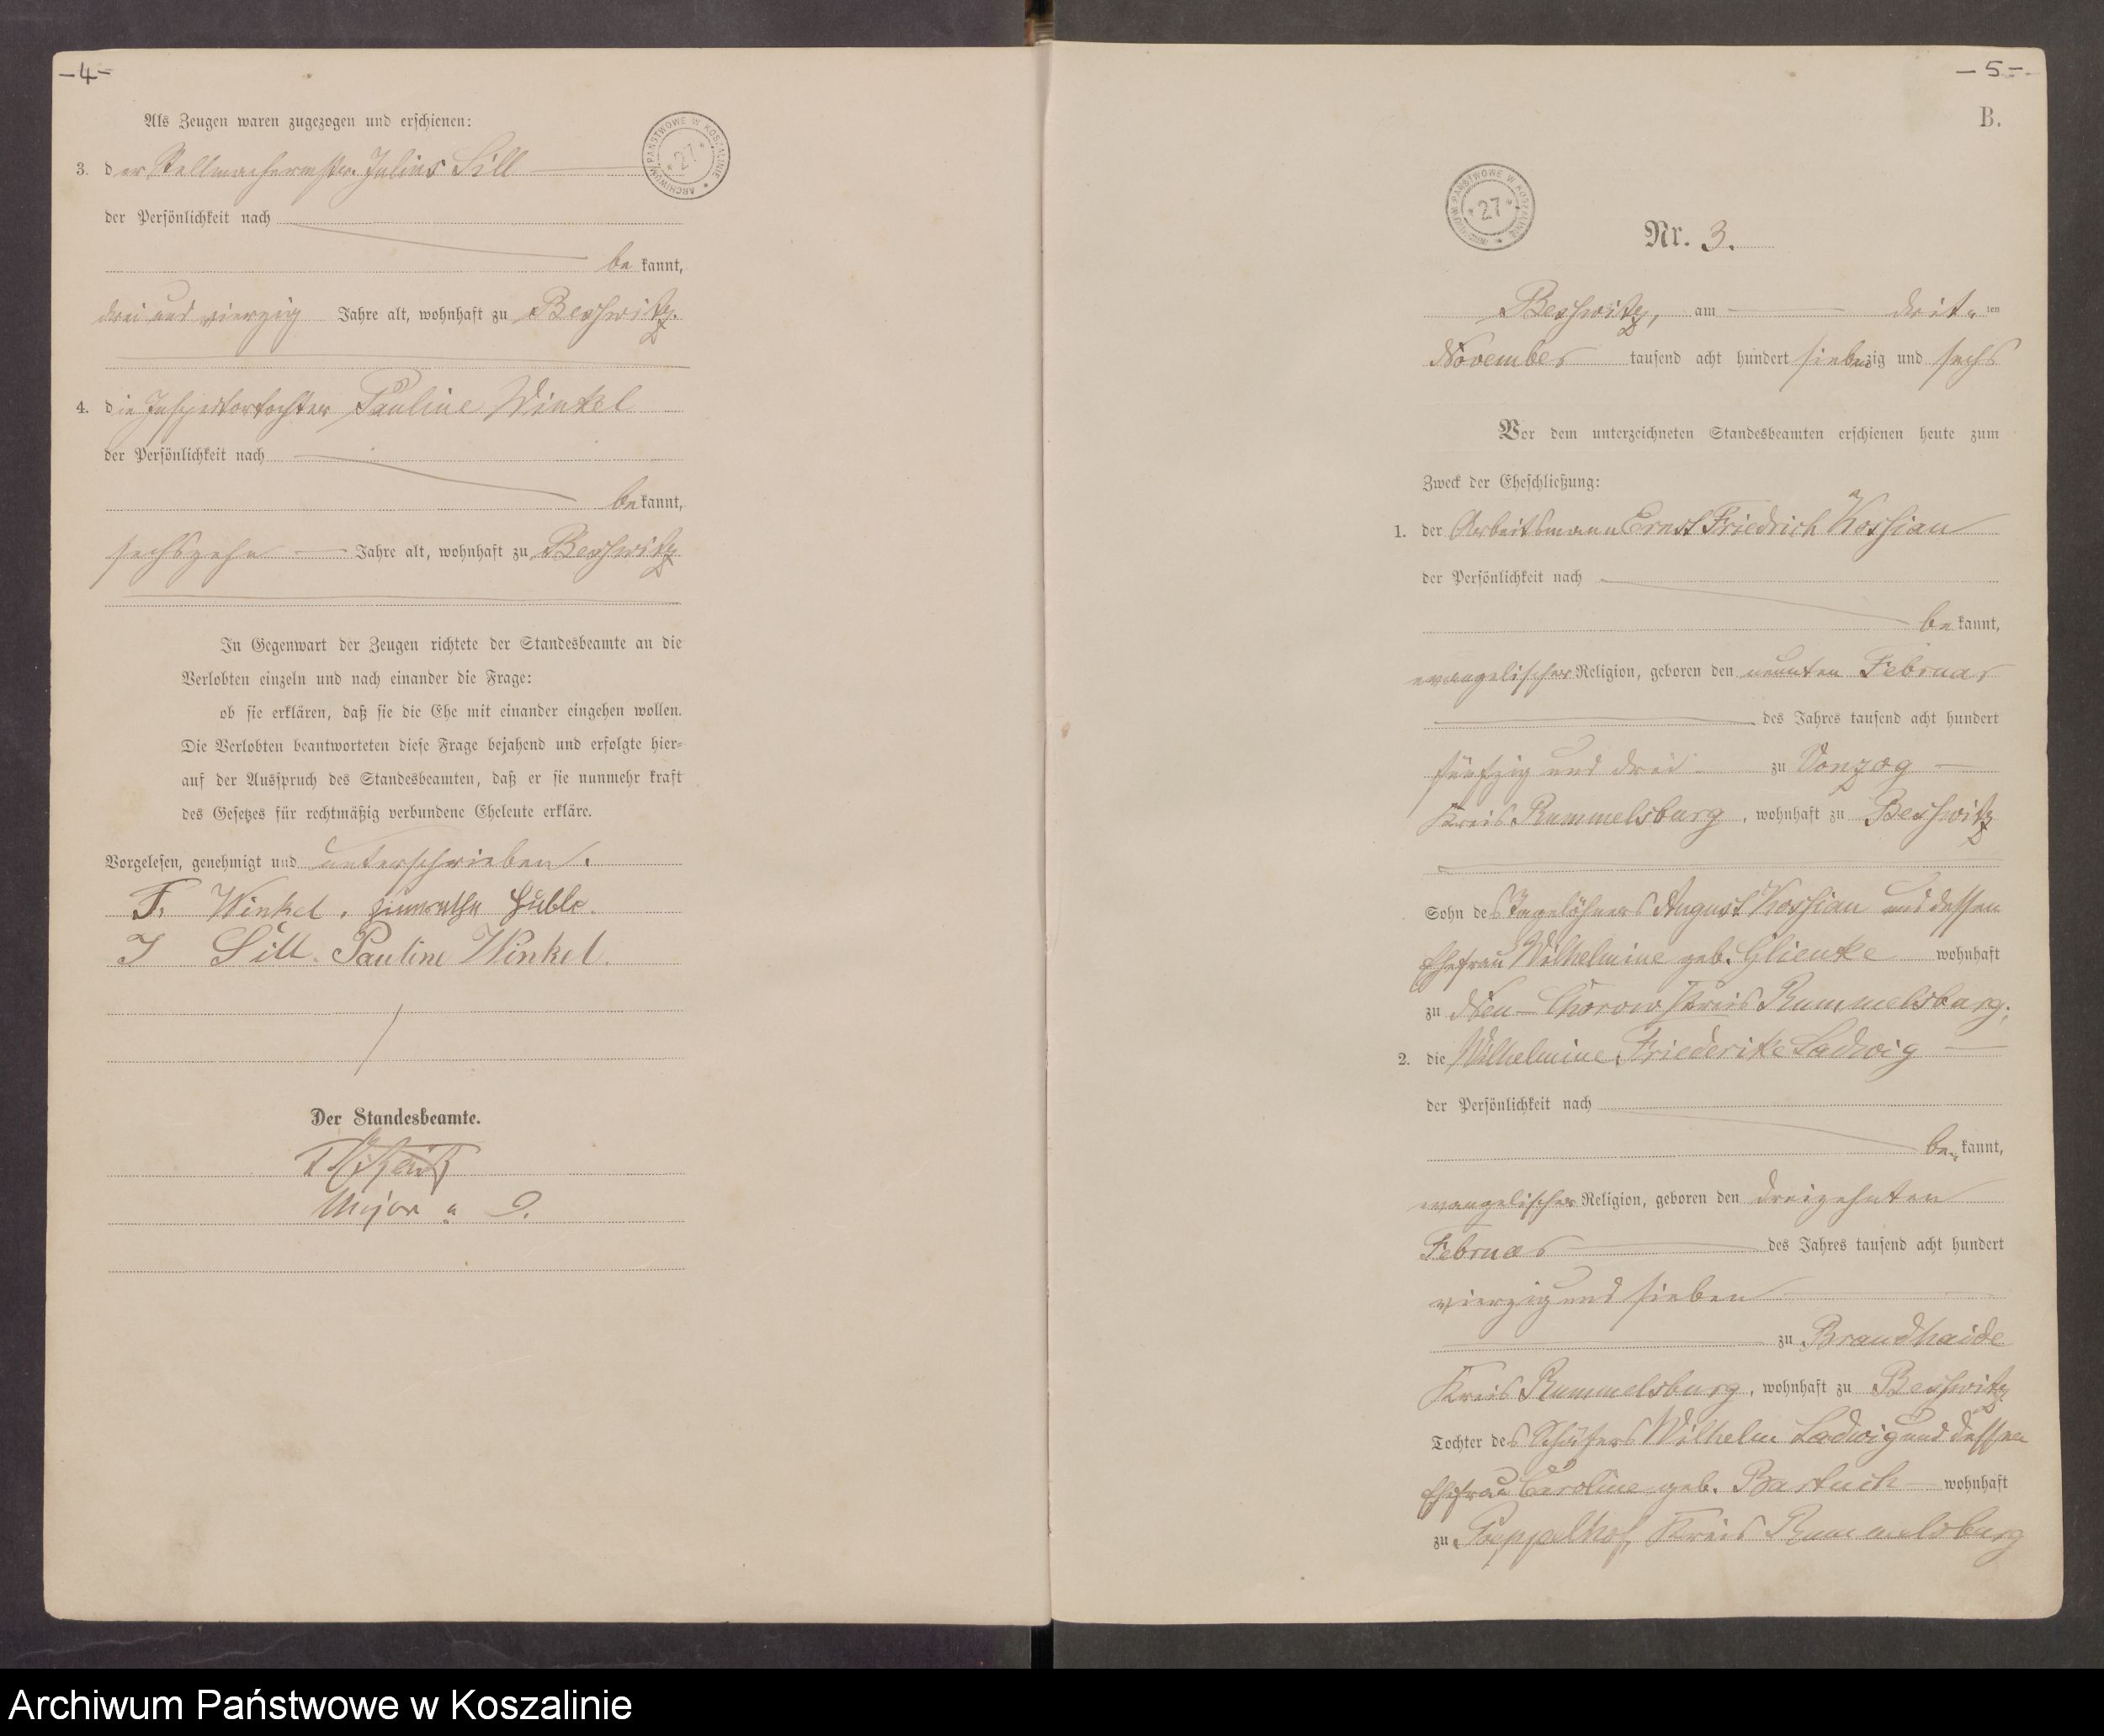 -4-
Als Zeugen waren zugezogen und erschienen:
ARCHIWUM PAŃSTWOWE W KOSZALINIE
27
3. der Stellmachermstr. Julius Sill
der Persönlichkeit nach
be kannt,
drei und vierzig Jahre alt, wohnhaft zu Beßwitz.
4. die Inspektortochter Pauline Winkel
der Persönlichkeit nach
be kannt,
sechszehn Jahre alt, wohnhaft zu Beßwitz
In Gegenwart der Zeugen richtete der Standesbeamte an die
Verlobten einzeln und nach einander die Frage:
ob sie erklären, daß sie die Ehe mit einander eingehen wollen.
Die Verlobten beantworteten diese Frage bejahend und erfolgte hier-
auf der Ausspruch des Standesbeamten, daß er sie nunmehr kraft
des Gesetzes für rechtmäßig verbundene Eheleute erkläre.
Vorgelesen, genehmigt und unterschrieben.
F. Winkel.
J Sill. Pauline Winkel.
Der Standesbeamte.
Major a D.
-5-
B.
ARCHIWUM PAŃSTWOWE W KOSZALINIE
27
Nr. 3.
Beßwitz, am dritten
November tausend acht hundert siebenzig und sechs
Vor dem unterzeichneten Standesbeamten erschienen heute zum
Zweck der Eheschließung:
1. der Arbeitsmann Ernst Friedrich Koshian
der Persönlichkeit nach
be kannt,
evangelischer Religion, geboren den neunten Februar
des Jahres tausend acht hundert
fünfzig und drei zu Vonzog
Kreis Rummelsburg, wohnhaft zu Beßwitz
Sohn des Tagelöhners August Koshian und dessen
Ehefrau Wilhelmine geb. Glienke wohnhaft
zu Neu-Chorow Kreis Rummelsburg;
2. die Wilhelmine Friederike Ladwig
der Persönlichkeit nach
be kannt,
evangelischer Religion, geboren den dreizehnten
Februar des Jahres tausend acht hundert
vierzig und sieben
zu Brandhaide
Kreis Rummelsburg, wohnhaft zu Beßwitz
Tochter des Schäfers Wilhelm Ladwig und dessen
Ehefrau Caroline geb. Bartuch wohnhaft
zu Puppelhof, Kreis Rummelsburg
Archiwum Państwowe w Koszalinie